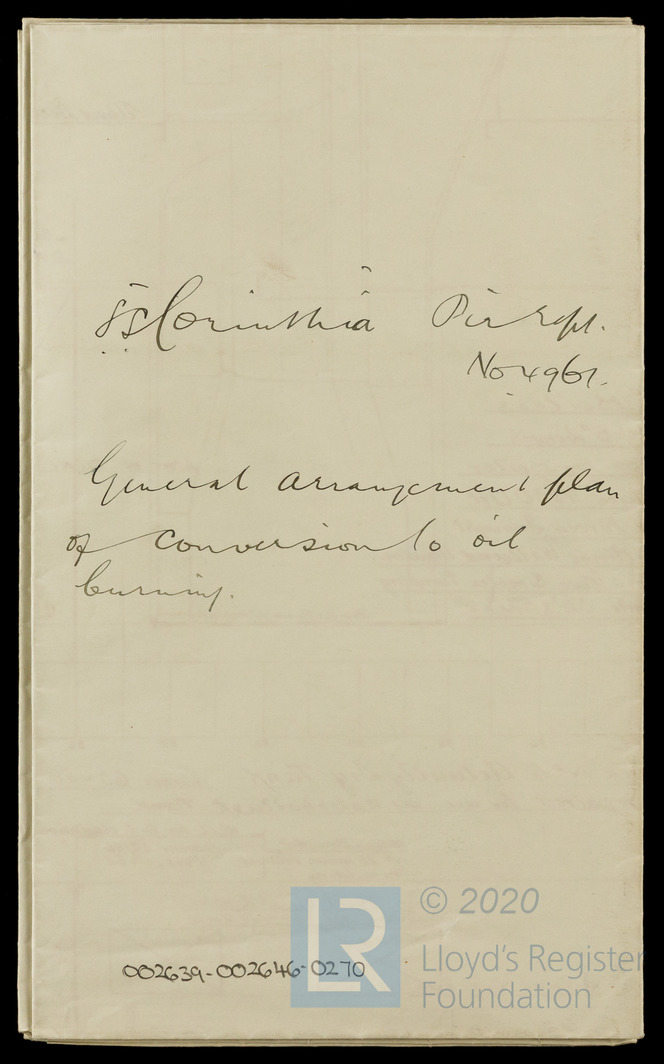 SS Corinthia Pir Rept.
No 4961.
General arrangement plan
of conversion to oil
burning.
002639-002646-0270
LR
© 2020
Lloyd's Register
Foundation